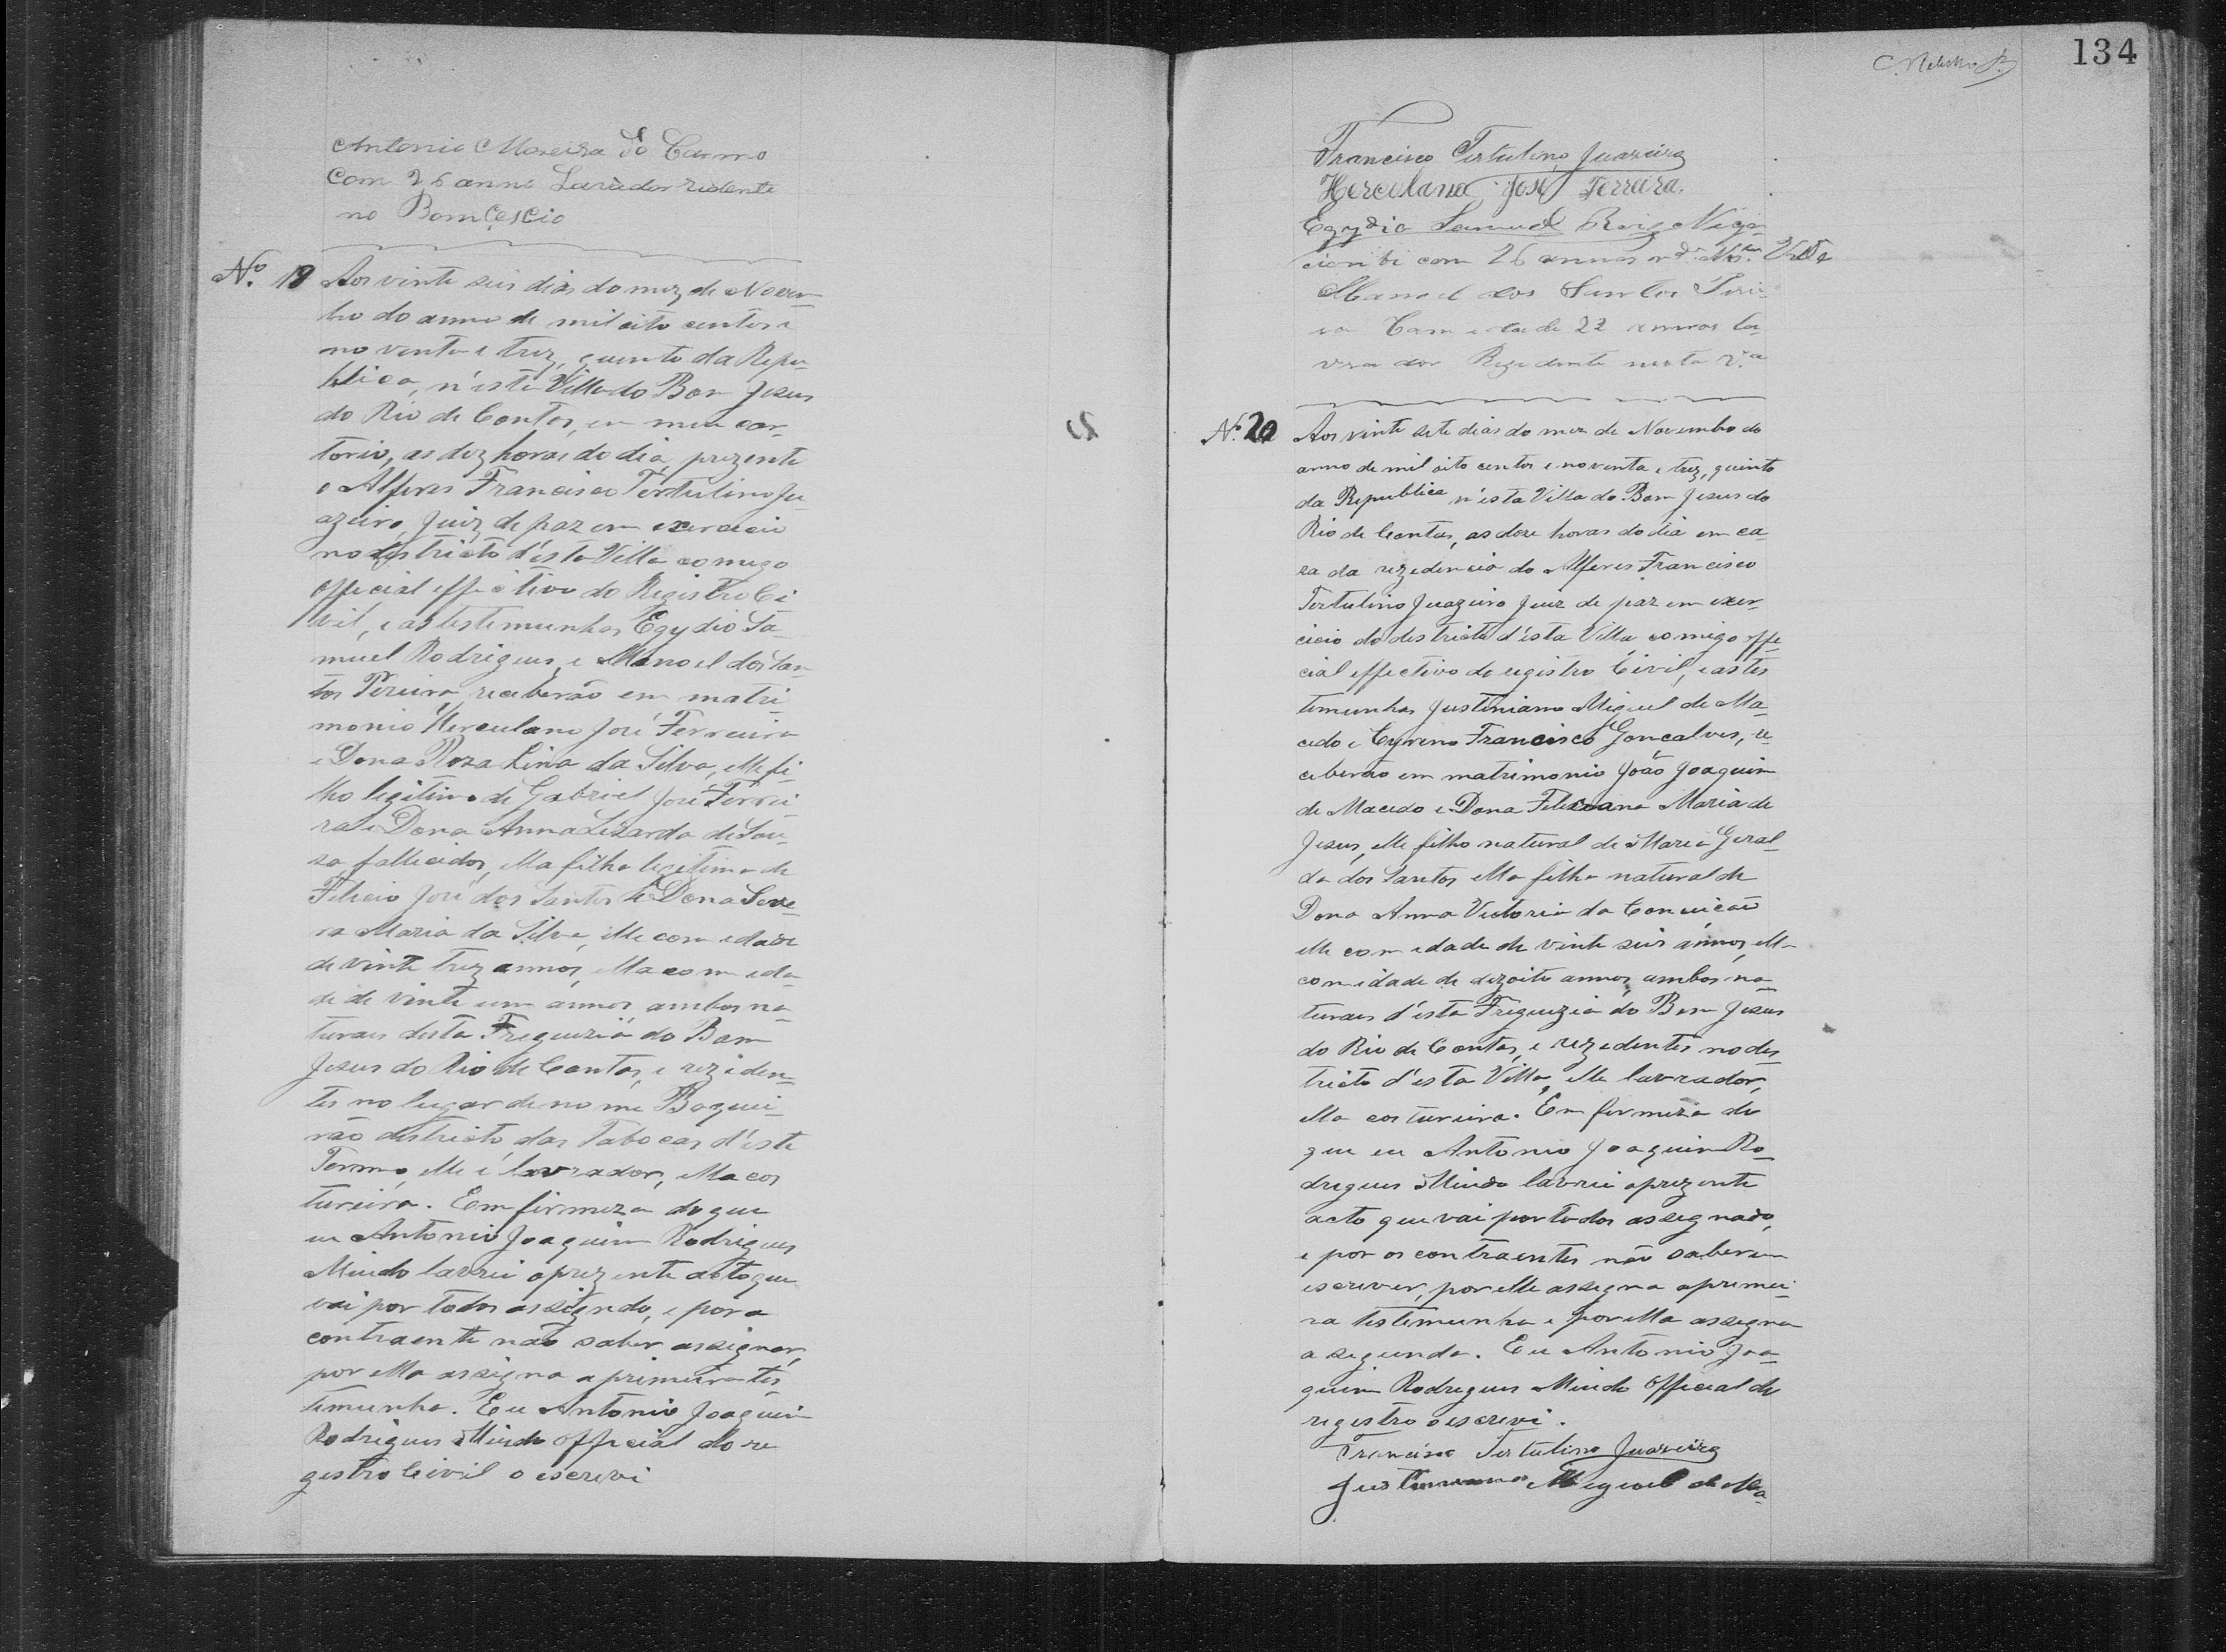 Antonio Moreira do Carmo
com 26 anno Lavrador
no
Nº 19 Aos vinte seis dias do mez de Novem-
bro do anno de mil oito centos e
noventa e trez, quinto da Repu-
blica, n'esta Villa do Bom Jesus
do Rio de Contas, em meu car-
torio, as dez horas do dia, prezente
o Alferes Francisco Tertulino Ju-
azeiro, Juiz de paz em exercicio
no destricto d'esta Villa comigo
official effectivo do Registro Ci
vil, e as testemunhas Egydio Sa-
muel Rodrigues, e Manoel dos San-
tos Pereira, receberão em matri-
monio Herculano José Ferreira
e Dona Roza Lina da Silva, elle fi-
lho legitimo de Gabriel José Ferrei-
ra e Dona Anna Lizarda de Sou-
sa, fallecidos, ella filha legitima de
Felicio José dos Santos e Dona Seve-
ra Maria da Silva, elle com edade
de vinte trez annos, ella com eda-
de de vinte um annos, ambos na-
turaes desta Freguezia do Bom
Jesus do Rio de Contas, e reziden-
tes no lugar de nome Boquei-
rão destricto das Tabocas d'este
Termo, elle é lavrador, ella cos
tureira. Em firmeza do que
eu Antonio Joaquim Rodrigues
Miudo lavrei o prezente acto que
vai por todos assignado, e por a
contraente não saber assignar,
por ella assigna a primeira tes-
temunha. Eu Antonio Joaquim
Rodrigues Miudo official do re
gestro Civil o escrevi
134
Francisco Tertulino Juazeiro
Herculano José Ferreira.
Egydio Samuel
com 26 annos
Manoel dos Santos Perei-
ra Com edade de 22 annos la-
vrador Rezidente nesta Vª
Nº 20 Aos vinte sete dias do mez de Novembro do
anno de mil oito centos e noventa e trez, quinto
da Republica n'esta Villa do Bom Jesus do
Rio de Contas, as doze horas do dia em ca-
za da rezedencia do Alferes Francisco
Tertulino Juazeiro Juiz de paz em exer-
cicio do destricto d'esta Villa, comigo offi-
cial effectivo do registro Civil, e as tes
temunhas Justiniano Miguel de Ma-
cedo e Cyreno Francisco Gonçalves, re-
ceberão em matrimonio João Joaquim
de Macedo e Dona Feliciana Maria de
Jesus, elle filho natural de Maria Geral-
da dos Santos ella filha natural de
Dona Anna Victoria da Conceição
elle com edade de vinte seis annos, ella
com idade de dezoito annos, ambos na-
turaes d'esta Freguezia do Bom Jesus
do Rio de Contas, e rezedentes no des-
tricto d'esta Villa, elle lavrador,
ella costureira. Em firmeza do
que eu Antonio Joaquim Ro-
drigues Miudo lavrei o prezente
acto que vai por todos assegnado,
e por os contraentes não saberem
escrever, por elle assegna a primei-
ra testemunha e por ella assegna
a segunda. Eu Antonio Joa-
quim Rodrigues Miudo Official do
regestro o escrevi.
Francisco Tertulino Juazeiro
Justiniano Miguel de Ma-